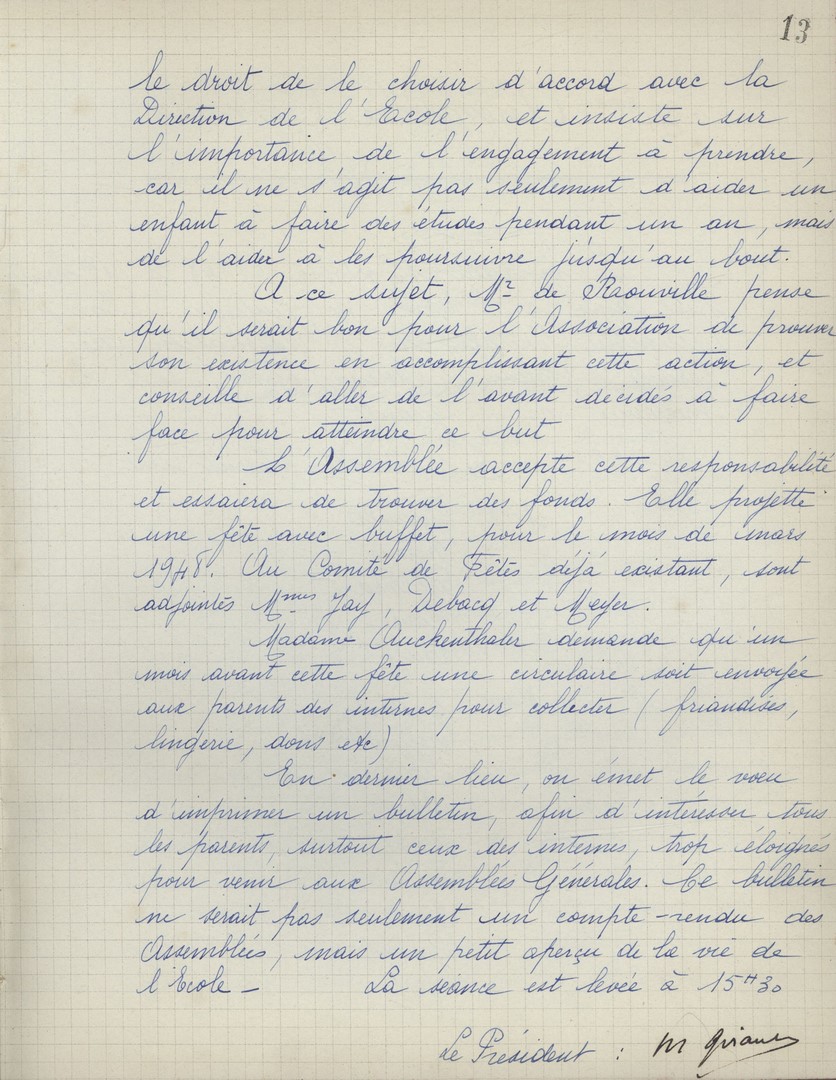 13
le droit de le choisir d'accord avec la
Direction de l'Ecole, et insiste sur
l'importance de l'engagement à prendre,
car il ne s'agit pas seulement d'aider un
enfant à faire des études pendant un an, mais
de l'aider à les poursuivre jusqu'au bout.
A ce sujet, Mr de Raouville pense
qu'il serait bon pour l'Association de prouver
son existence en accomplissant cette action, et
conseille d'aller de l'avant décidés à faire
face pour atteindre ce but
L'Assemblée accepte cette responsabilité
et essaiera de trouver des fonds. Elle projette
une fête avec buffet, pour le mois de mars
1948. Au Comité de Fêtes déjà existant, sont
adjointes Mmes Jay, Debacq et Meyer.
Madame Auckenthaler demande qu'un
mois avant cette fête une circulaire soit envoyée
aux parents des internes pour collecter (friandises,
lingerie, dons etc)
En dernier lieu, on émet le voeu
d'imprimer un bulletin, afin d'intéresser tous
les parents, surtout ceux des internes, trop éloignés
pour venir aux Assemblées Générales. Ce bulletin
ne serait pas seulement un compte-rendu des
Assemblées, mais un petit aperçu de la vie de
l'Ecole - La séance est levée à 15H30
Le Président : M